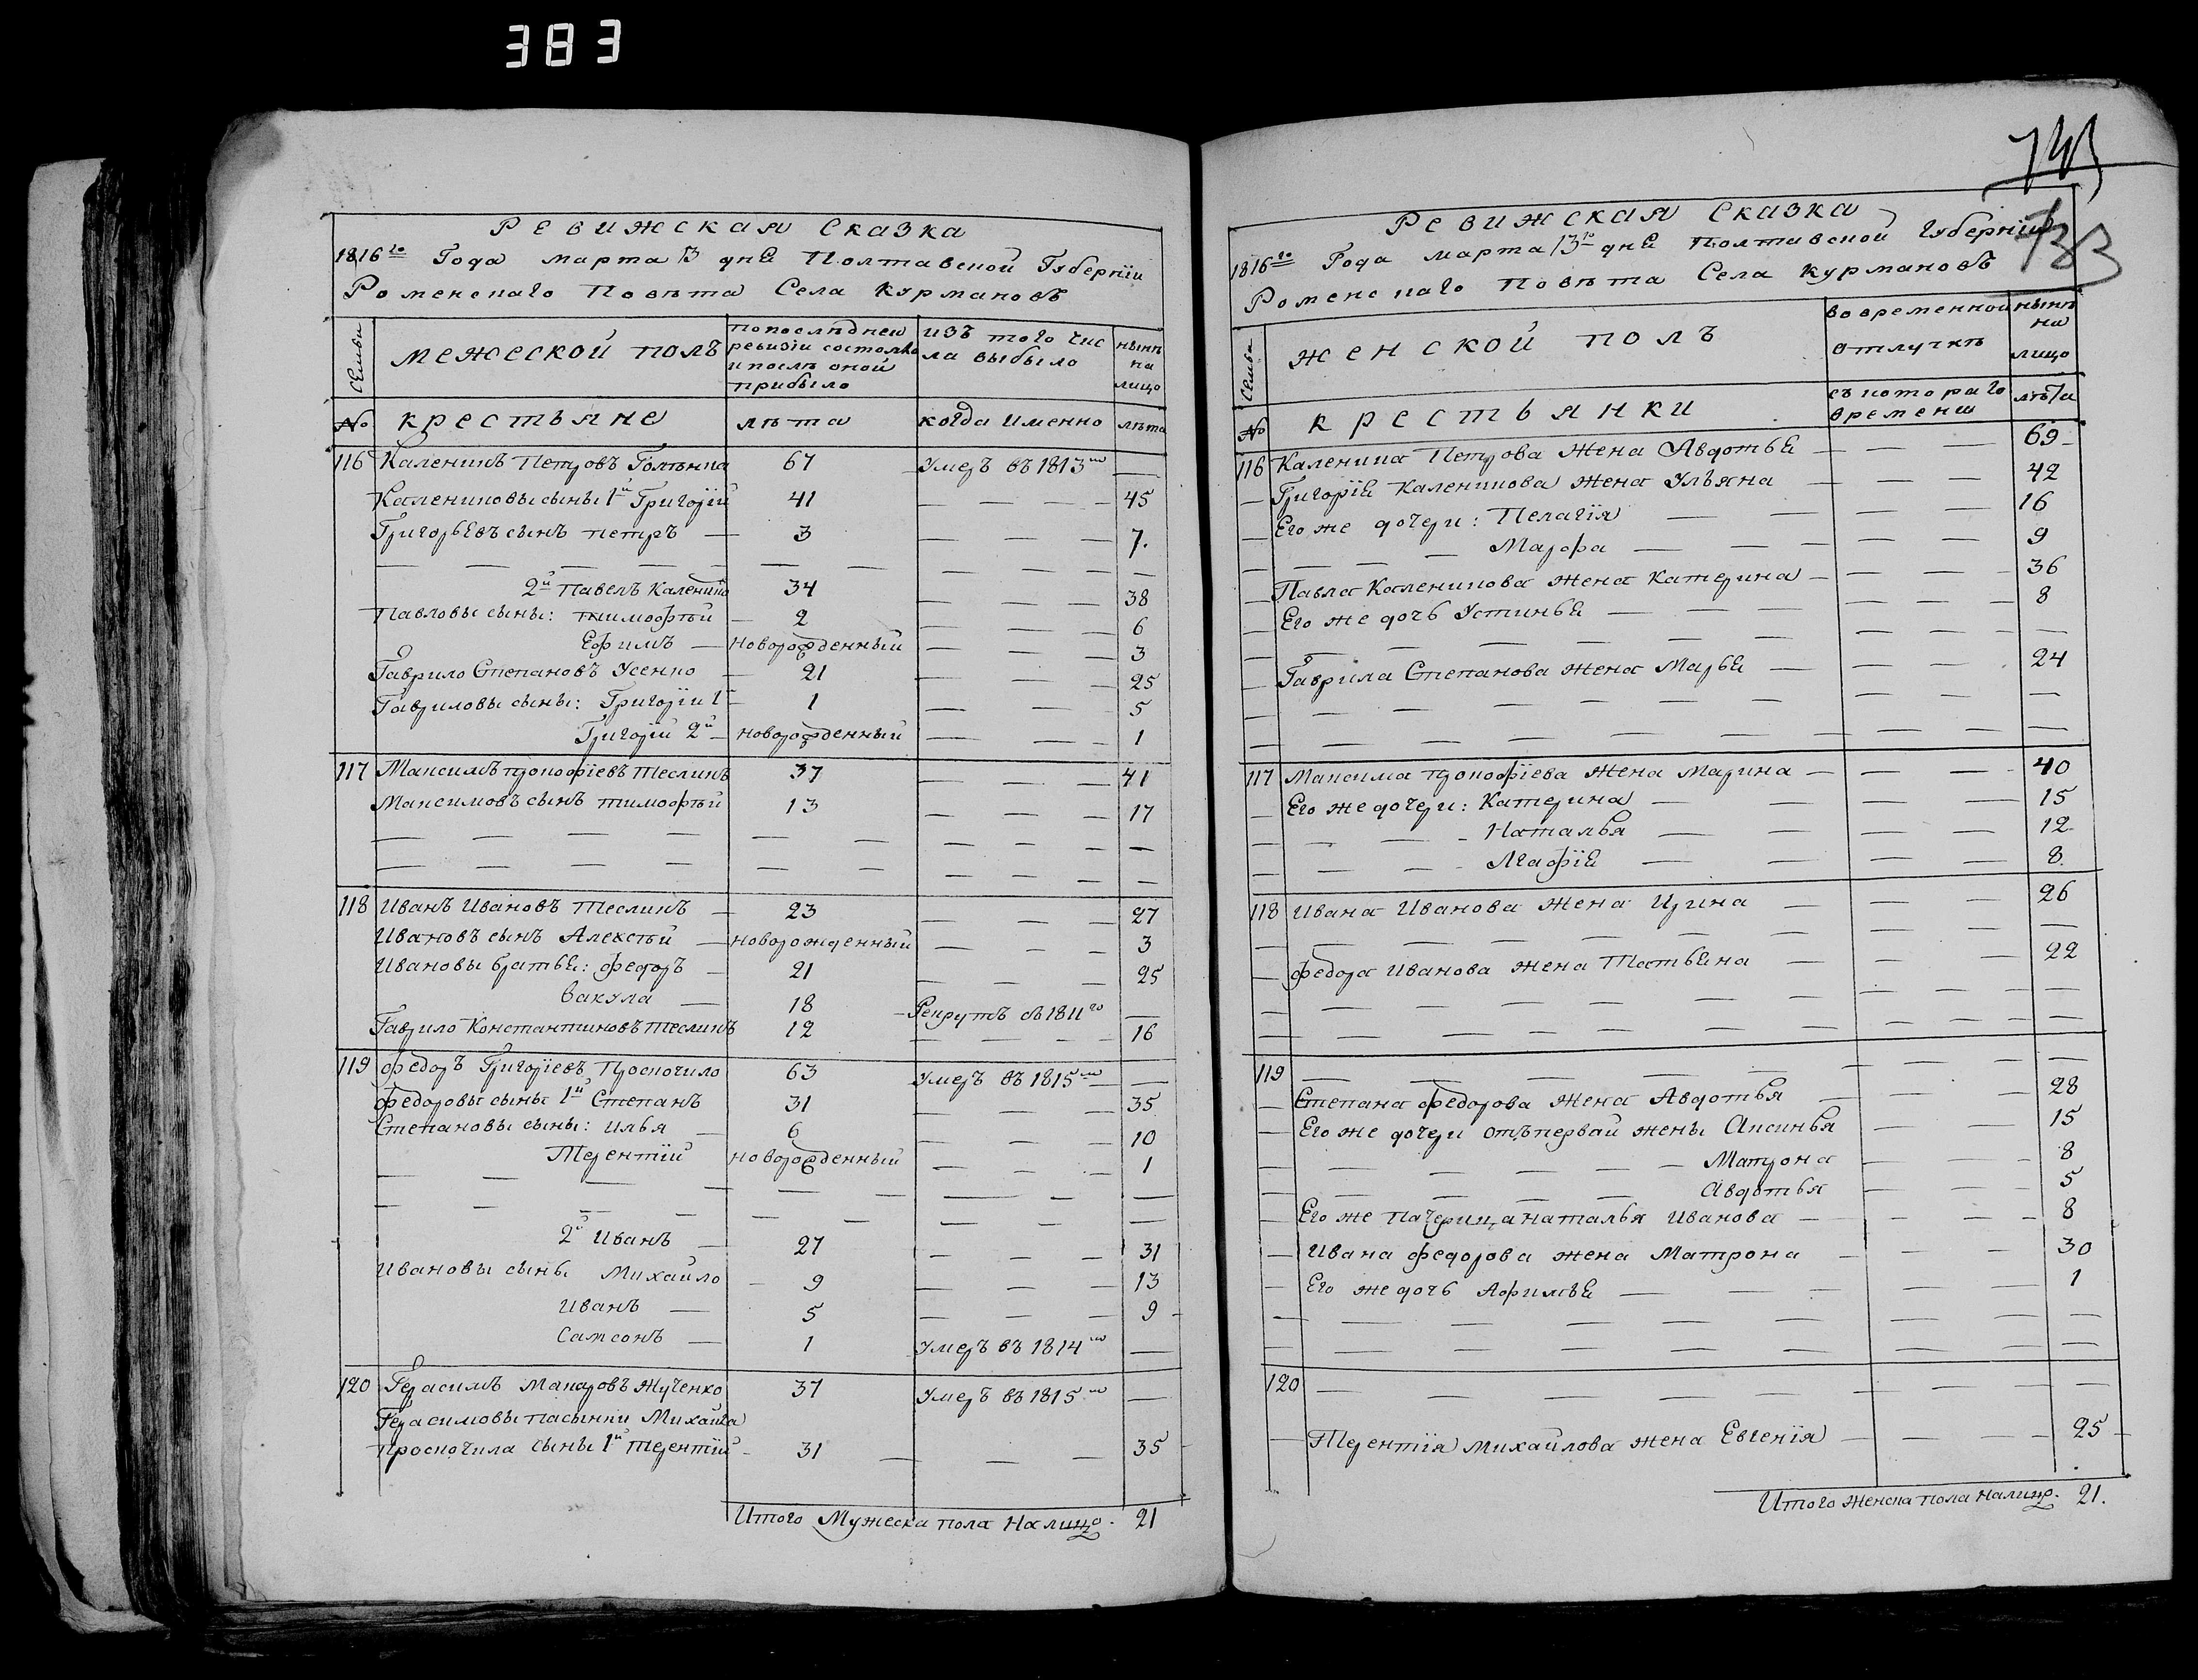 383
Ревижская Сказка
1816го Года марта 13 дня Полтавской Губернїи
Роменскаго Повѣта Села Курмановъ
Семьи
межеской полъ
попослѣдней ревизїи состояло и послѣ оной прибыло
изъ того числа выбыло
нынѣ на лицо
№ крестьяне лѣта когда именно лѣта
116 Каленикъ Петровъ 67 Умеръ въ 1813мъ —
Калениковы сыны 1й Григорїй 41 — — — 45
Григорьевъ сынъ петръ — 3 — — — 7.
2й Павелъ Каленико 34 — — — 38
Павловы сыны: тимофѣй — 2 — — — 6
Ефимъ — новорожденный — — — 3
Гаврило Степановъ Усенко — 21 — — — 25
Гавриловы сыны: Григорїи 1 — 1 — — — 5
Григорїй 2й — новорожденный — — — 1
117 Максимъ прокофїевъ тесликъ 37 — — — 41
Максимовъ сынъ тимофѣй 13 — — — 17
118 Иванъ Ивановъ тесликъ — 23 — — — 27
Ивановъ сынъ Алексѣй — новорожденный — — — 3
Ивановы братья: федоръ — 21 — — — 25
вакула — 18 Рекрутъ съ 1811го —
Гаврило Константиновъ тесликъ 12 — — — 16
119 федоръ Григорїевъ Проскочило 63 Умеръ въ 1815мъ —
федоровы сыны 1й Степанъ 31 — — — 35
Степановы сыны: илья — 6 — — — 10
Терентїй новорожденный — — — 1
2й Иванъ — 27 — — — 31
Ивановы сыны Михайло — 9 — — — 13
Иванъ — 5 — — — 9
Самсонъ — 1 Умеръ въ 1814мъ —
120 Герасимъ Макаровъ Жученко 37 Умеръ въ 1815мъ —
Герасимовы пасынки Михайла
проскочила сыны 1й терентїй — 31 — — — 35
Итого Мужеска пола На лицо. 21
Ревижская Сказка
1816го Года марта 13го дня Полтавской Губернїи
133
Роменскаго Повѣта Села Курмановъ
Семьи
женской полъ
во временной отлучкѣ
нынѣ на лицо
№ крестьянки съ котораго времени лѣта
116 Каленика Петрова жена Авдотья — — — 69
Григорїя Каленикова жена Ульяна — — — 42
Его же дочери: Пелагїя — — — 16
Марфа — — — 9
Павла Каленикова жена Катерина — — — 36
Его же дочь Устинья — — — 8
Гаврила Степанова жена Марья — — — 24
117 Максима прокофїева жена Марина — — — 40
Его же дочери: Катерина — — — 15
Наталья — — — 12
Агафїя — — — 8
118 Ивана Иванова жена Ирина — — — 26
федора Иванова жена Татьяна — — — 22
119 — — — —
Степана федорова жена Авдотья — — — 28
Его же дочери отъ первай жены Аксинья — — 15
Матрона — — — 8
Авдотья — — — 5
Его же пачерица наталья Иванова — — — 8
Ивана федорова жена Матрона — — — 30
Его же дочь Афимья — — — 1
120 — — — —
Терентїя Михайлова жена Евгенїя — — — 25
Итого Женска пола на лицо. 21.